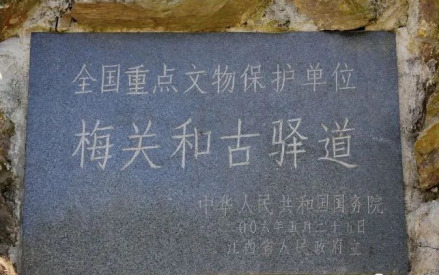 全国重点文物保护单位
梅关和古驿道
中华人民共和国国务院
二〇〇六年五月二十五日
江西省人民政府立